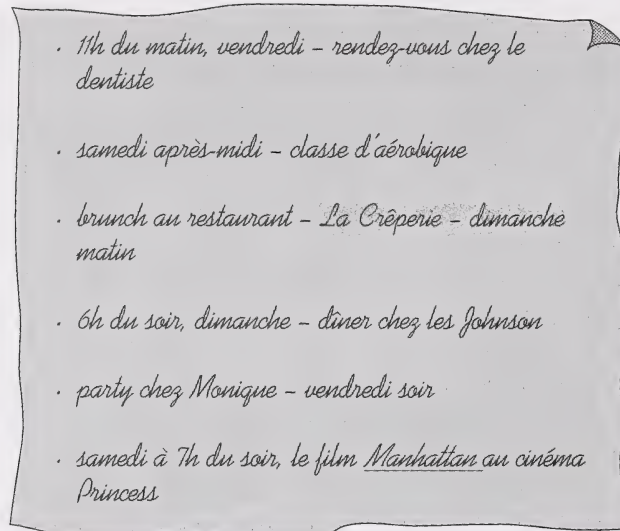 · 11h du matin, vendredi – rendez-vous chez le
dentiste
· samedi après-midi – classe d'aérobique
· brunch au restaurant – La Crêperie – dimanche
matin
· 6h du soir, dimanche – dîner chez les Johnson
· party chez Monique – vendredi soir
· samedi à 7h du soir, le film Manhattan au cinéma
Princess